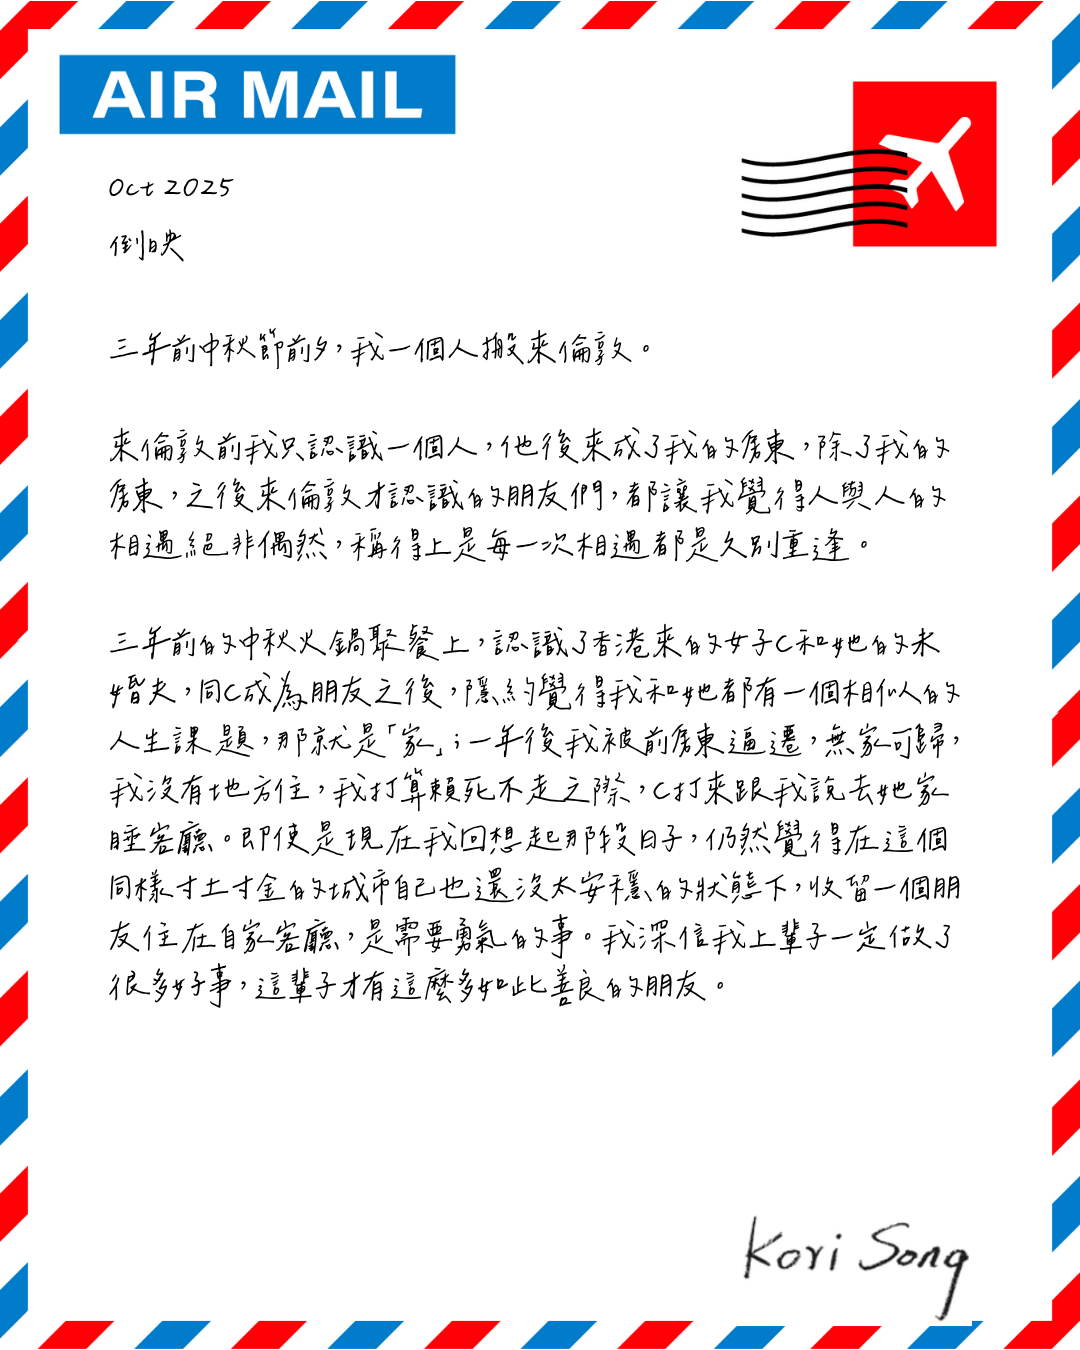 AIR MAIL
Oct 2025
倒映
三年前中秋節前夕，我一個人搬來倫敦。
來倫敦前我只認識一個人，他後來成了我的房東，除了我的
房東，之後來倫敦才認識的朋友們，都讓我覺得人與人的
相遇絕非偶然，稱得上是每一次相遇都是久別重逢。
三年前的中秋火鍋聚餐上，認識了香港來的女子C和她的未
婚夫，同C成為朋友之後，隱約覺得我和她都有一個相似的
人生課題，那就是「家」；一年後我被前房東逼遷，無家可歸，
我沒有地方住，我打算賴死不走之際，C打來跟我說去她家
睡客廳。即使是現在我回想起那段日子，仍然覺得在這個
同樣寸土寸金的城市自己也還沒太安穩的狀態下，收留一個朋
友住在自家客廳，是需要勇氣的事。我深信我上輩子一定做了
很多好事，這輩子才有這麼多如此善良的朋友。
Kori Song